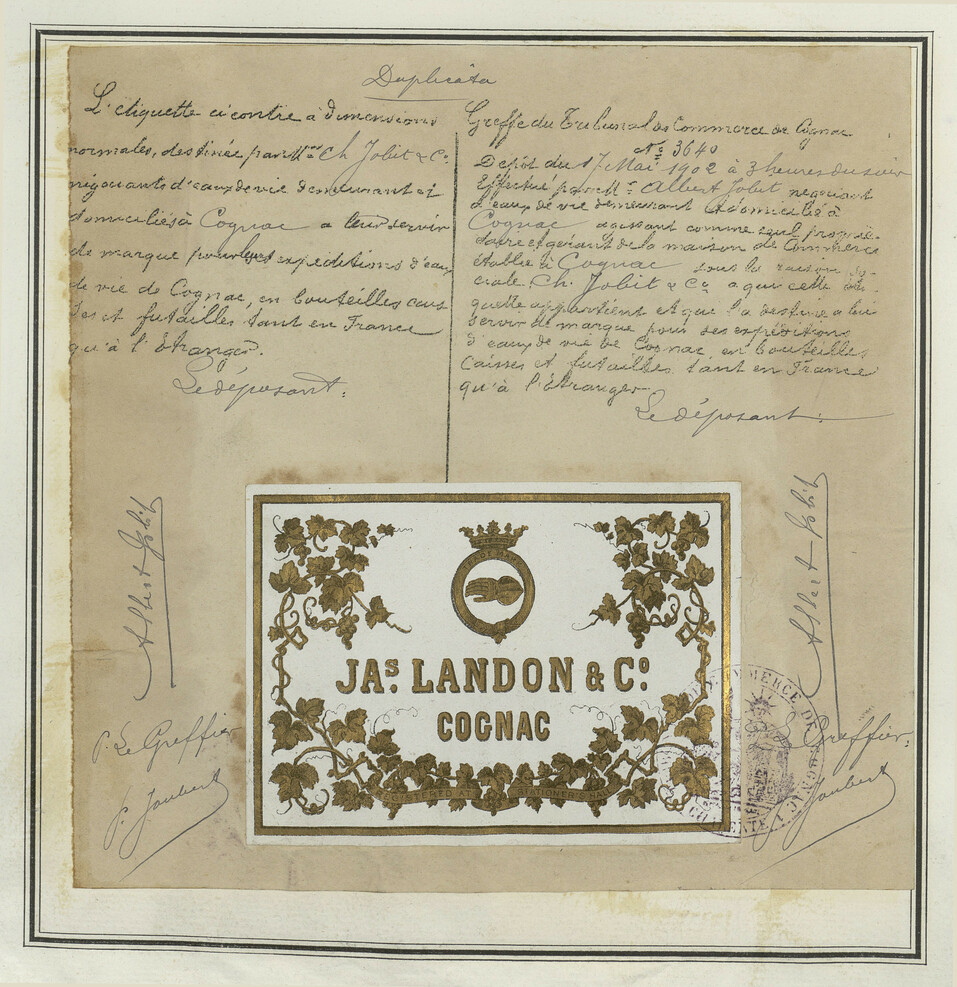 Duplicata
L'etiquette ci contre à dimensions
normales, destinée par Mrs Ch Jobit & Co
négociants d'eaux de vie demeurant et
domiciliés à Cognac a leur servir
de marque pour leurs expeditions d'eaux
de vie de Cognac, en bouteilles cais
ses et futailles tant en France
qu'à l'Etranger.
Le déposant:
Greffe du Tribunal de Commerce de Cognac
No 3640
Depôt du 17 Mai 1902 à 3 heures du soir
Effectué par Mr Albert Jobit négociant
d'eaux de vie demeurant & domicilié à
Cognac agissant comme seul proprié-
taire et gérant de la maison de Commerce
établie à Cognac sous la raison so-
ciale Ch. Jobit & Co a qui cette éti-
quette appartient et que l'a destine a lui
servir de marque pour ses expéditions
d'eaux de vie de Cognac, en bouteilles
caisses et futailles, tant en France
qu'à l'Etranger
Le déposant:
Albert Jobit
Albert Jobit
P. Le Greffier
P. Joubert
Le Greffier:
Joubert
JAS. LANDON & CO.
COGNAC
REGISTERED AT STATIONERS HALL
COMMERCE DE COGNAC
CHARENTE